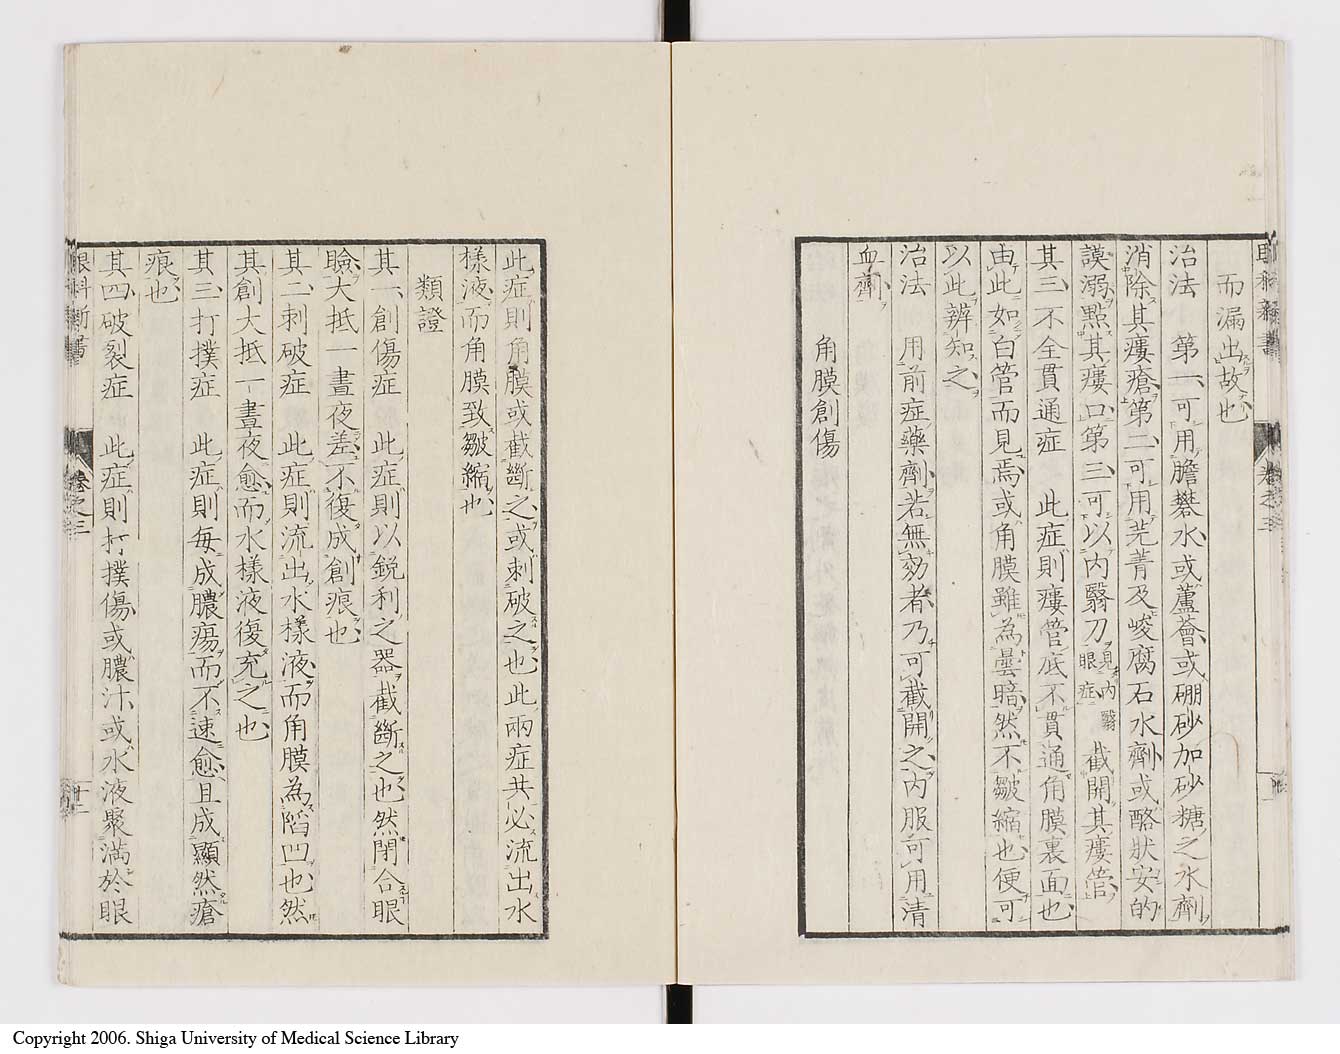 而漏出故也
治法 第一可用膽礬水或蘆薈或硼砂加砂糖之水劑
消除其瘻瘡第二可用芫菁及峻腐石水劑或酪狀安的
謨溺點其瘻口第三可以內翳刀見內翳眼症截開其瘻管
其三不全貫通症 此症則瘻管底不貫通角膜裏面也
由此如白管而見焉或角膜雖為曇暗然不皺縮也便可
以此辨知之
治法 用前症藥劑若無効者乃可截開之內服可用清
血劑
角膜創傷
此症則角膜或截斷之或刺破之也此兩症共必流出水
樣液而角膜致皺縮也
類證
其一創傷症 此症則以銳利之器截斷之也然閉合眼
瞼大抵一晝夜差不復成創痕也
其二刺破症 此症則流出水樣液而角膜為陷凹也然
其創大抵一晝夜愈而水樣液復充之也
其三打撲症 此症則每成膿瘍而不速愈且成顯然瘡
痕也
其四破裂症 此症則打撲傷或膿汁或水液聚滿於眼
眼科新書 卷之三
Copyright 2006. Shiga University of Medical Science Library